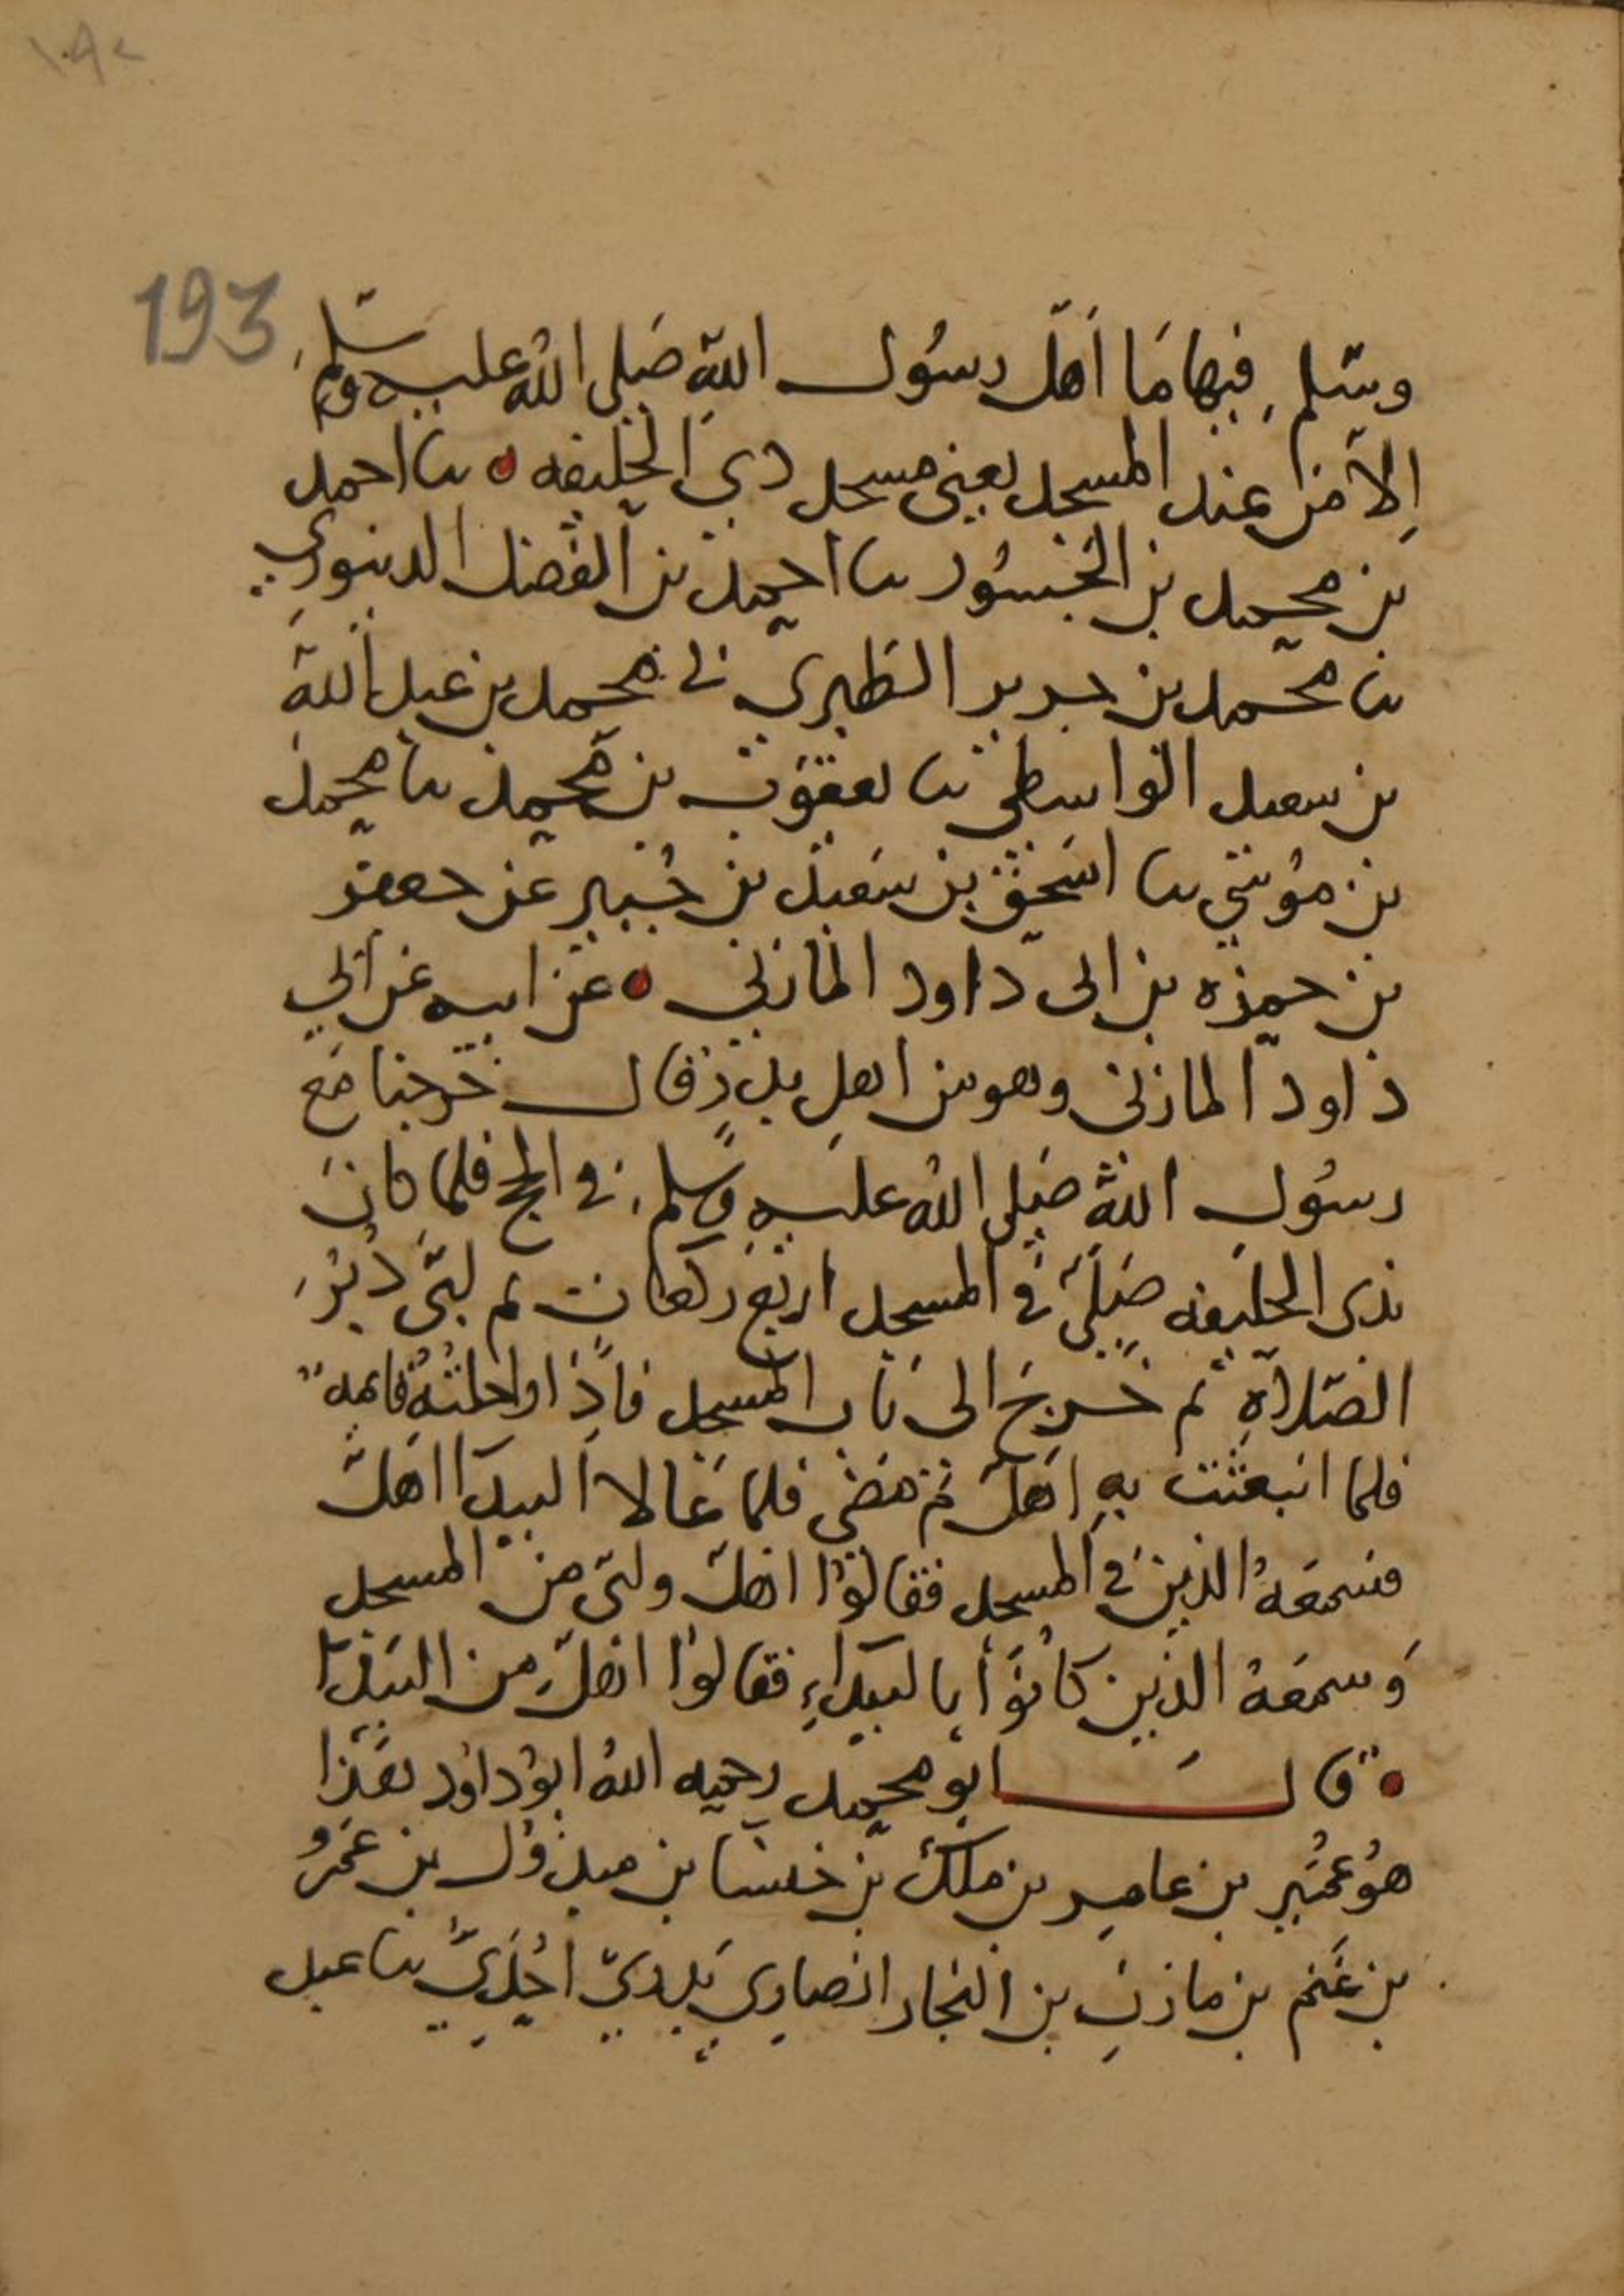 ١٩٢
193
وسلم فيها ما أهل رسول الله صلى الله عليه وسلم
إلا من عند المسجد يعني مسجد ذي الحليفه ثنا احمد
بن محمد بن الجسور ثنا احمد بن الفضل الدينوري
ثنا محمد بن جرير الطبري ني محمد بن عبد الله
بن سعيد الواسطي ثنا يعقوب بن محمد ثنا محمد
بن موسى ثنا اسحق بن سعيد بن جبير عن جعفر
بن حمزه بن ابي داود المازني عن ابيه عن ابي
داود المازني وهو من اهل بدر قال خرجنا مع
رسول الله صلى الله عليه وسلم في الحج فلما كان
بذي الحليفه صلى في المسجد اربع ركعات ثم لبى دبر
الصلاة ثم خرج الى باب المسجد فإذا راحلته قائمه
فلما انبعثت به اهل ثم مضى فلما علا البيدا اهل
فسمعه الذين في المسجد فقالوا اهل ولبى من المسجد
وسمعه الذين كانوا بالبيداء فقالوا اهل من البيدا
قال ابو محمد رحمه الله ابو داود هذا
هو عمير بن عامر بن ملك بن خنسا بن مبذول بن عمرو
بن غنم بن مازن بن النجار انصاري بدري احدي ثنا عبد